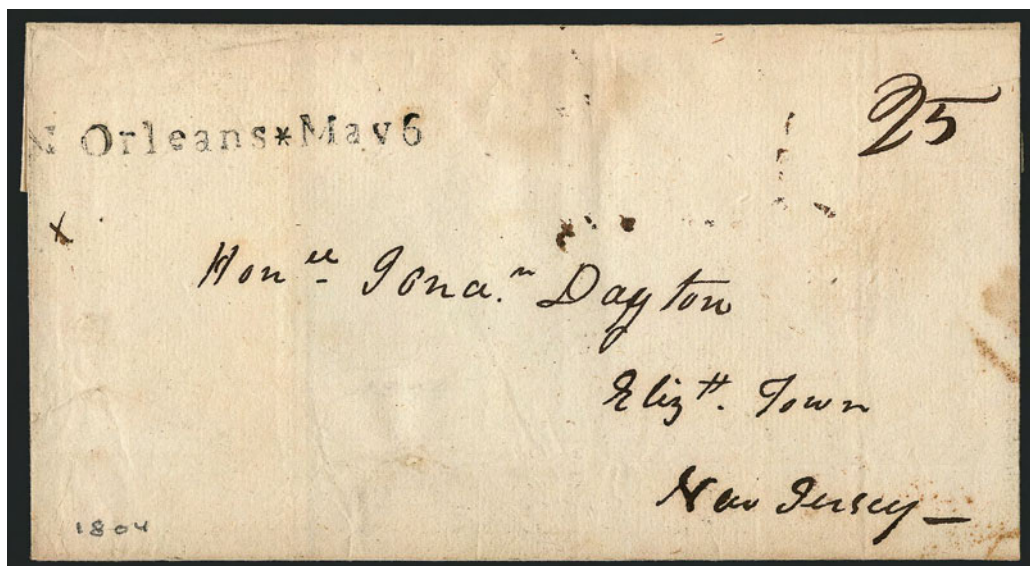 25
N Orleans*May 6
x
Honle Jona.n Dayton
Elizth. Town
New Jersey
1804